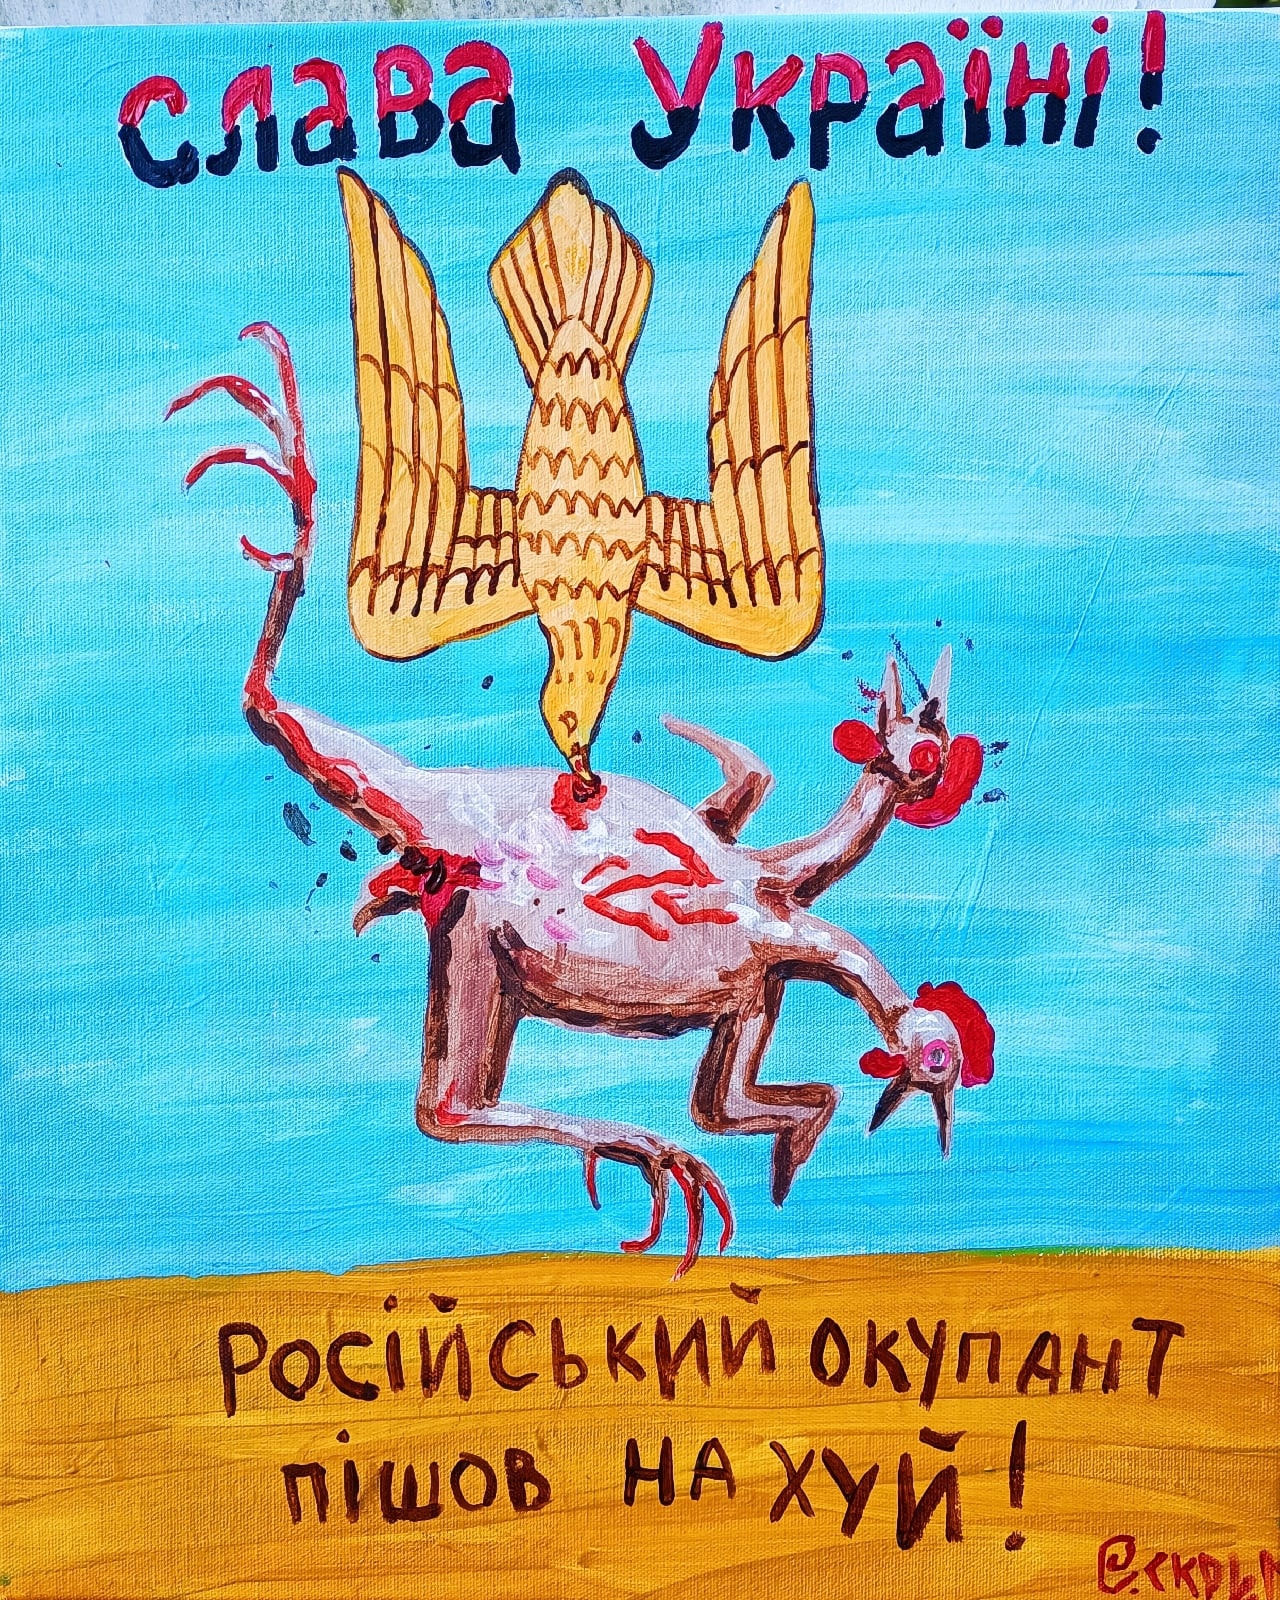 Слава Україні!
Російський окупант
пішов на хуй!